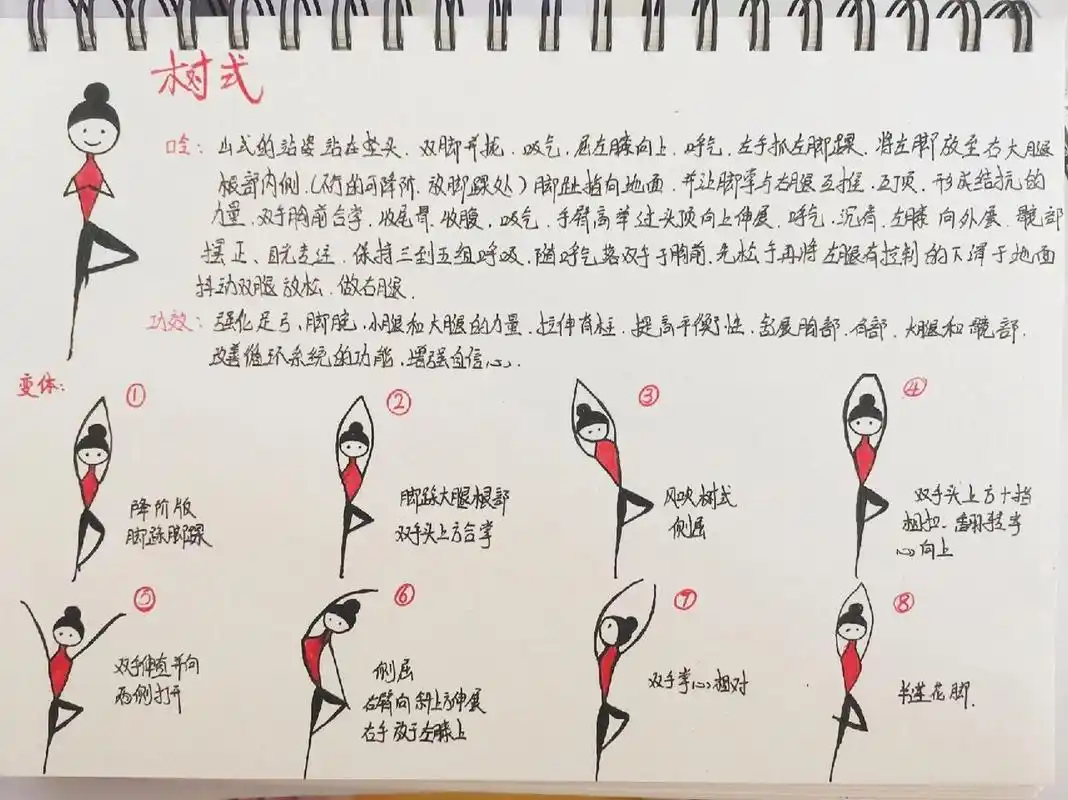 树式
口令：山式的站姿站在垫头，双脚并拢，吸气，屈左膝向上，呼气，左手抓左脚踝，将左脚放至右大腿
根部内侧（不行的可降阶，放脚踝处）脚趾指向地面，并让脚掌与右腿互推，互顶，形成结抗的
力量，双手胸前合掌，收尾骨，收腹，吸气，手臂高举过头顶向上伸展，呼气，沉肩，左膝向外展，髋部
摆正、目光专注，保持三到五组呼吸，随呼气落双手于胸前，先松手再将左腿有控制的下滑于地面
抖动双腿放松，做右腿。
功效：强化足弓、脚腕，小腿和大腿的力量，拉伸脊柱，提高平衡性，扩展胸部，肩部，大腿和髋部，
改善循环系统的功能，增强自信心。
变体：
①
降阶版
脚踩脚踝
②
脚踩大腿根部
双手头上方合掌
③
风吹树式
侧屈
④
双手头上方十指
相扣、翻转掌
心向上
⑤
双手伸直并向
两侧打开
⑥
侧屈
右臂向斜上方伸展
右手放于左膝上
⑦
双手掌心相对
⑧
半莲花脚.